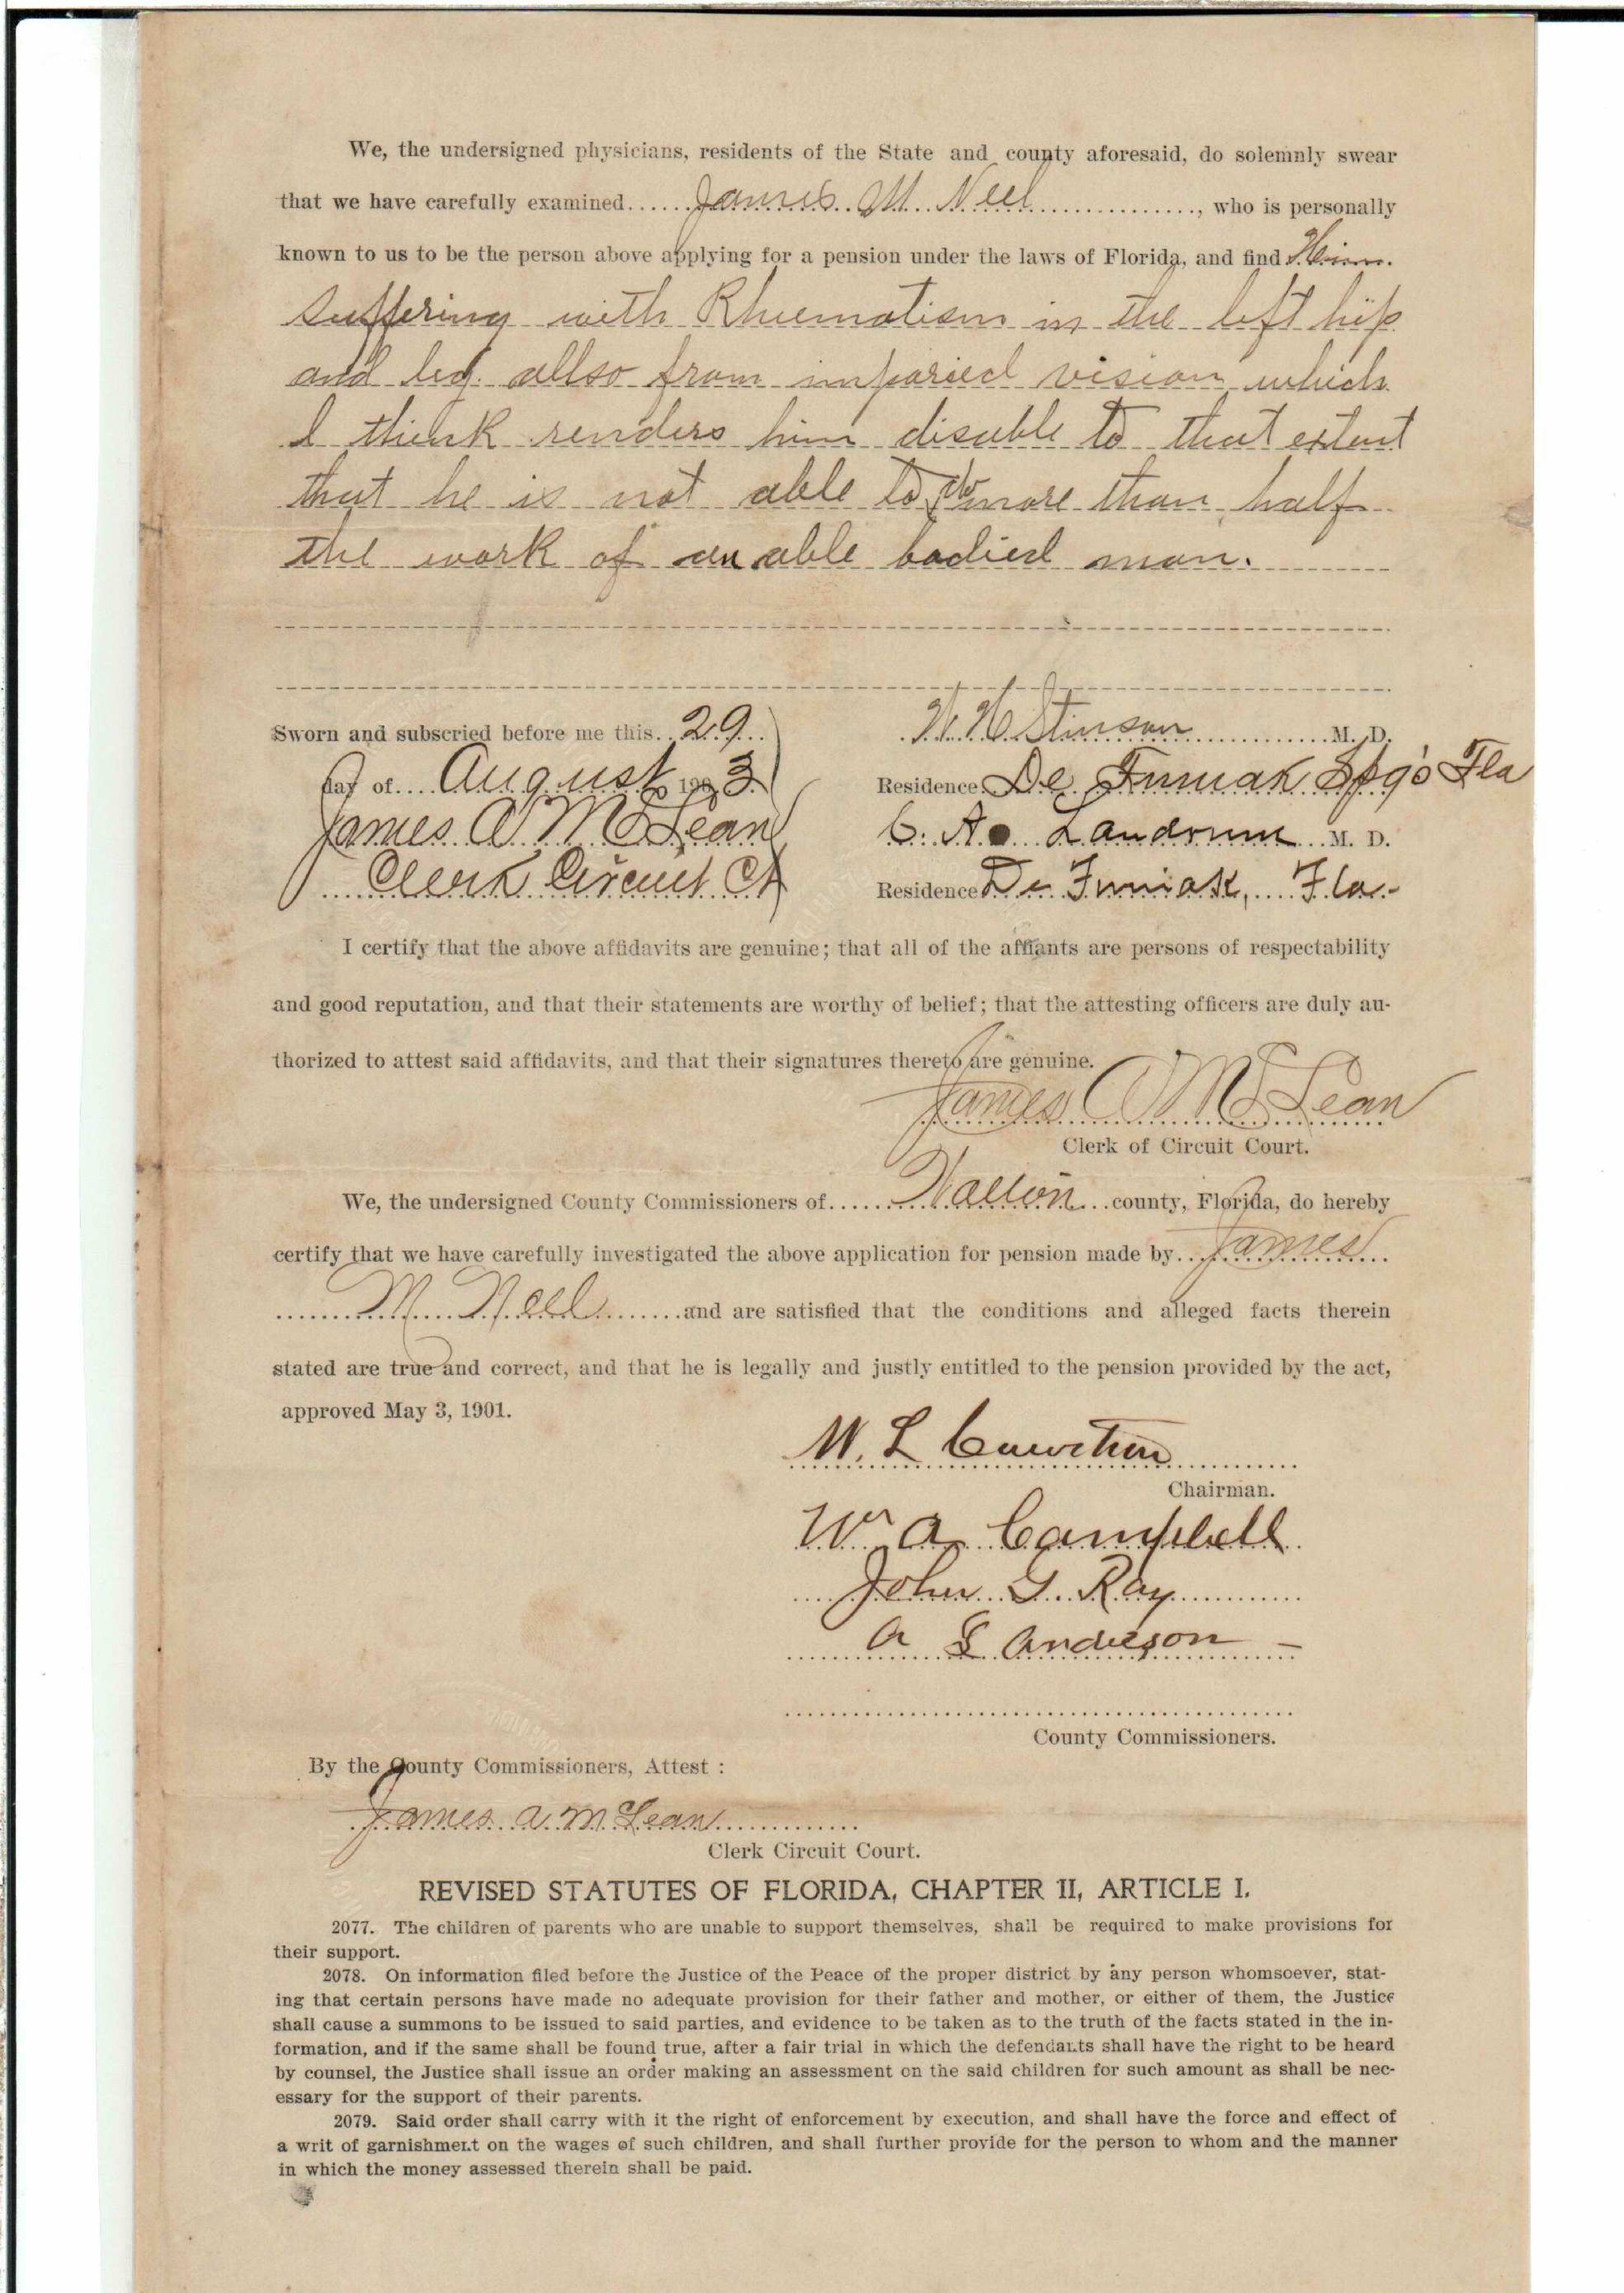 We, the undersigned physicians, residents of the State and county aforesaid, do solemnly swear
that we have carefully examined......James M. Neel................, who is personally
known to us to be the person above applying for a pension under the laws of Florida, and find Him.
suffering with Rhumatism in the left hip
and leg. allso from imparied vision which
I think renders him disable to that extent
that he is not able to do more than half
the work of an able bodied man.
Sworn and subscried before me this..29..
day of....August, 1903.
James A McLean
Clerk Circuit Ct
Stinson............M. D.
Residence De Funiak Spg's Fla
C. A. Landrum...M. D.
Residence De Funiak, Fla.
I certify that the above affidavits are genuine; that all of the affiants are persons of respectability
and good reputation, and that their statements are worthy of belief; that the attesting officers are duly au-
thorized to attest said affidavits, and that their signatures thereto are genuine.
James A McLean
Clerk of Circuit Court.
We, the undersigned County Commissioners of......Walton...county, Florida, do hereby
certify that we have carefully investigated the above application for pension made by..James..
......M. Neel........and are satisfied that the conditions and alleged facts therein
stated are true and correct, and that he is legally and justly entitled to the pension provided by the act,
approved May 3, 1901.
W. L Cawthon
Chairman.
Wm A. Campbell
John G. Ray
A L Anderson
County Commissioners.
By the County Commissioners, Attest :
James A. McLean
Clerk Circuit Court.
REVISED STATUTES OF FLORIDA, CHAPTER II, ARTICLE I.
2077. The children of parents who are unable to support themselves, shall be required to make provisions for
their support.
2078. On information filed before the Justice of the Peace of the proper district by any person whomsoever, stat-
ing that certain persons have made no adequate provision for their father and mother, or either of them, the Justice
shall cause a summons to be issued to said parties, and evidence to be taken as to the truth of the facts stated in the in-
formation, and if the same shall be found true, after a fair trial in which the defendants shall have the right to be heard
by counsel, the Justice shall issue an order making an assessment on the said children for such amount as shall be nec-
essary for the support of their parents.
2079. Said order shall carry with it the right of enforcement by execution, and shall have the force and effect of
a writ of garnishment on the wages of such children, and shall further provide for the person to whom and the manner
in which the money assessed therein shall be paid.